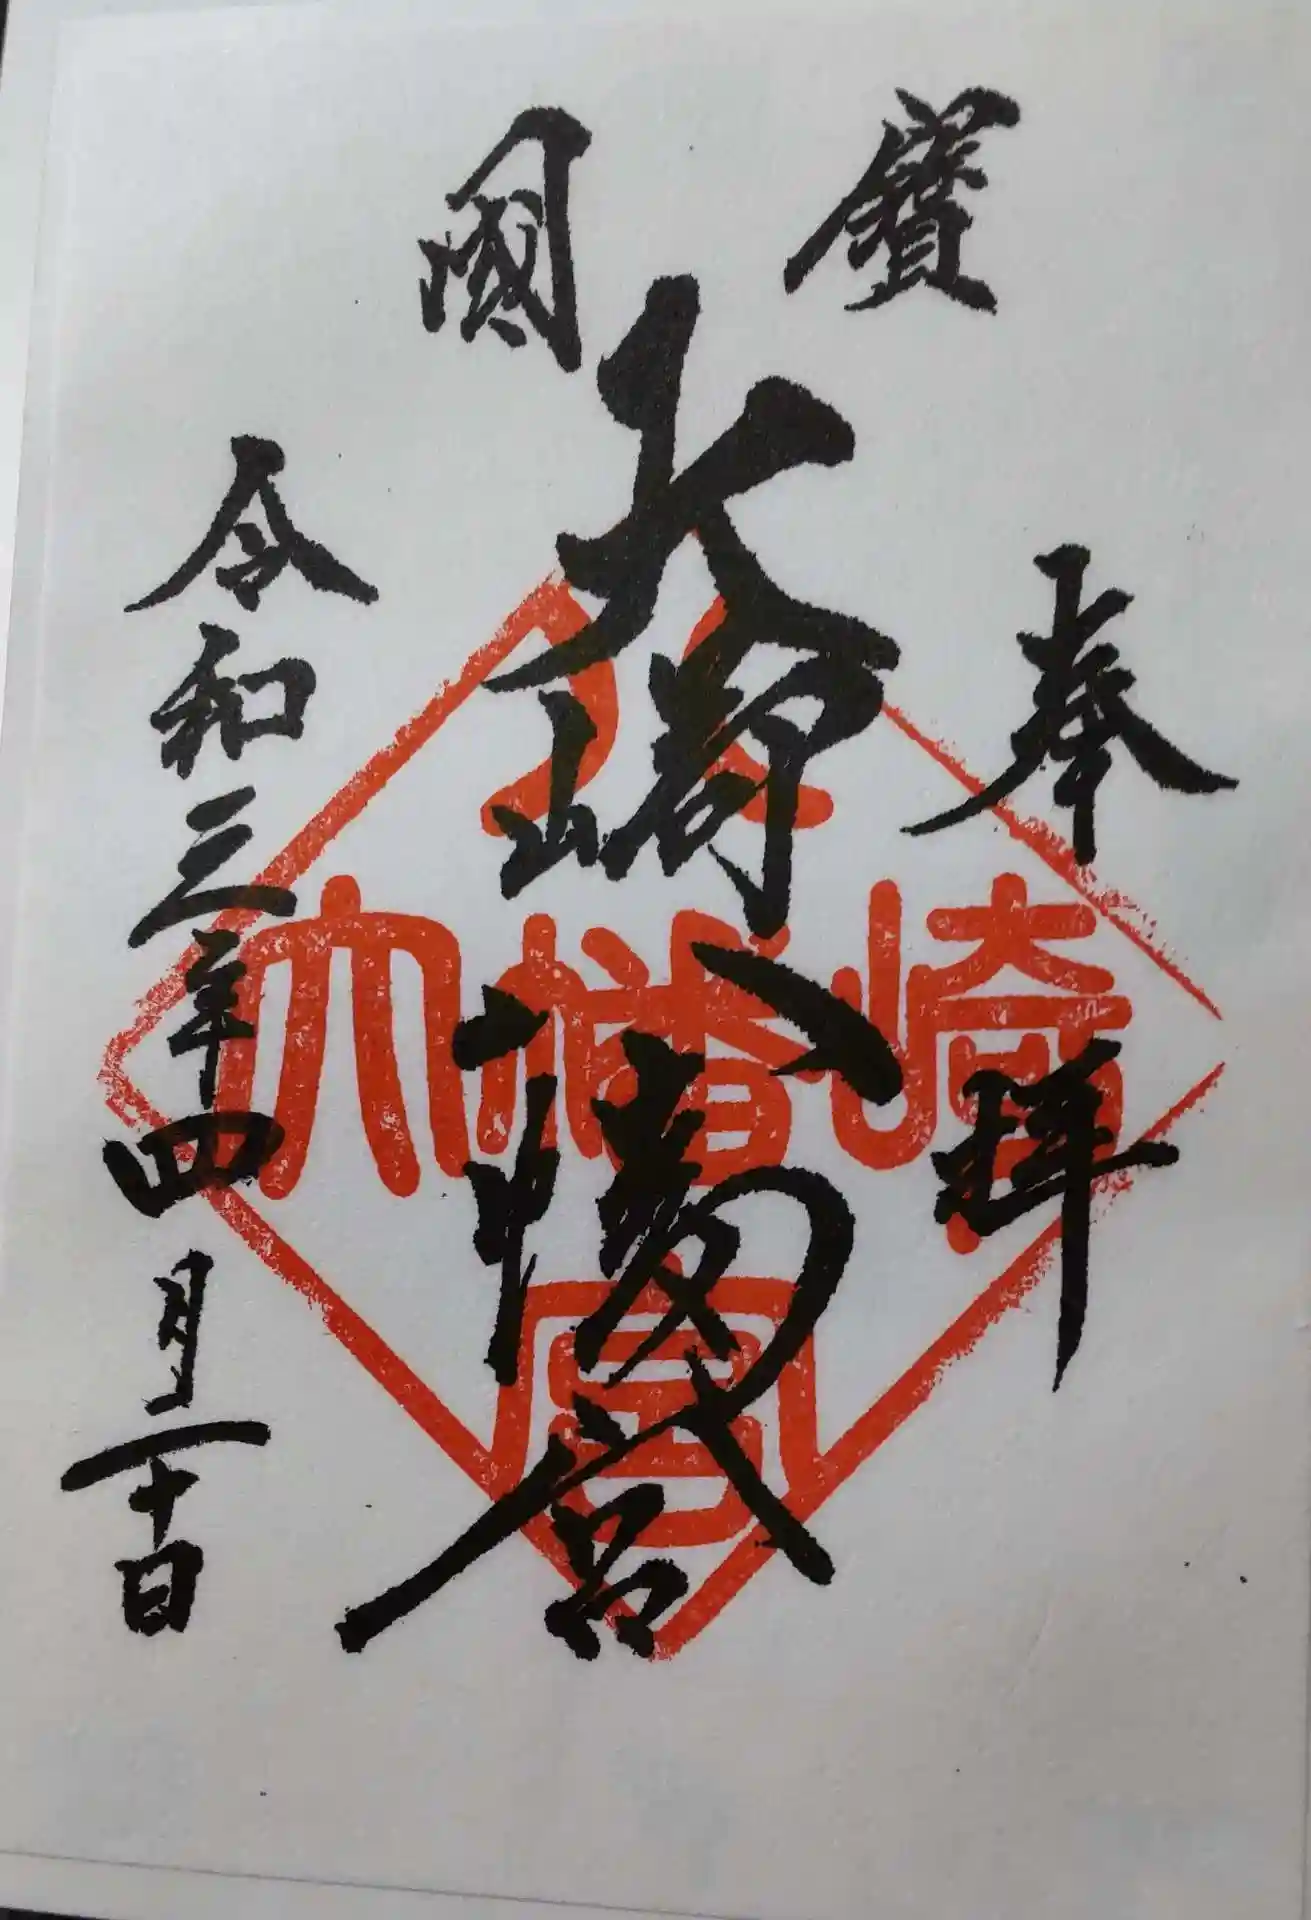 國寶
奉拝
大崎八幡宮
令和三年四月二十日
大崎八幡宮